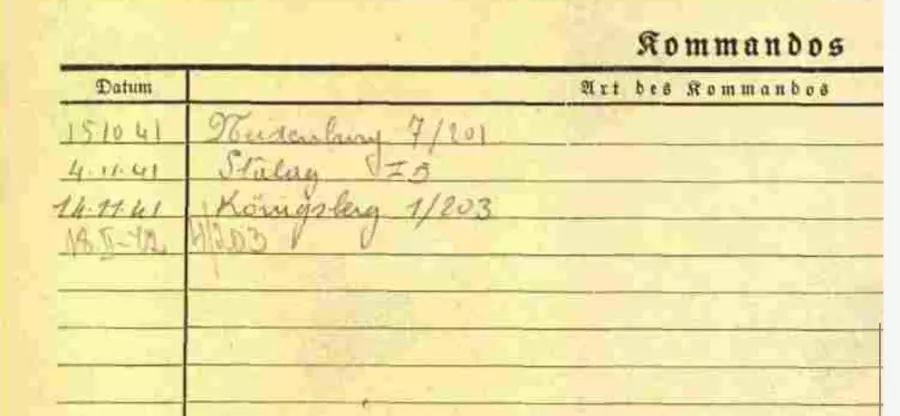 Kommandos
Datum Art des Kommandos
15 10 41 Neidenburg 7/201
4.11.41 Stalag IB
14.11.41 Königsberg 1/203
18.II-42 4/203